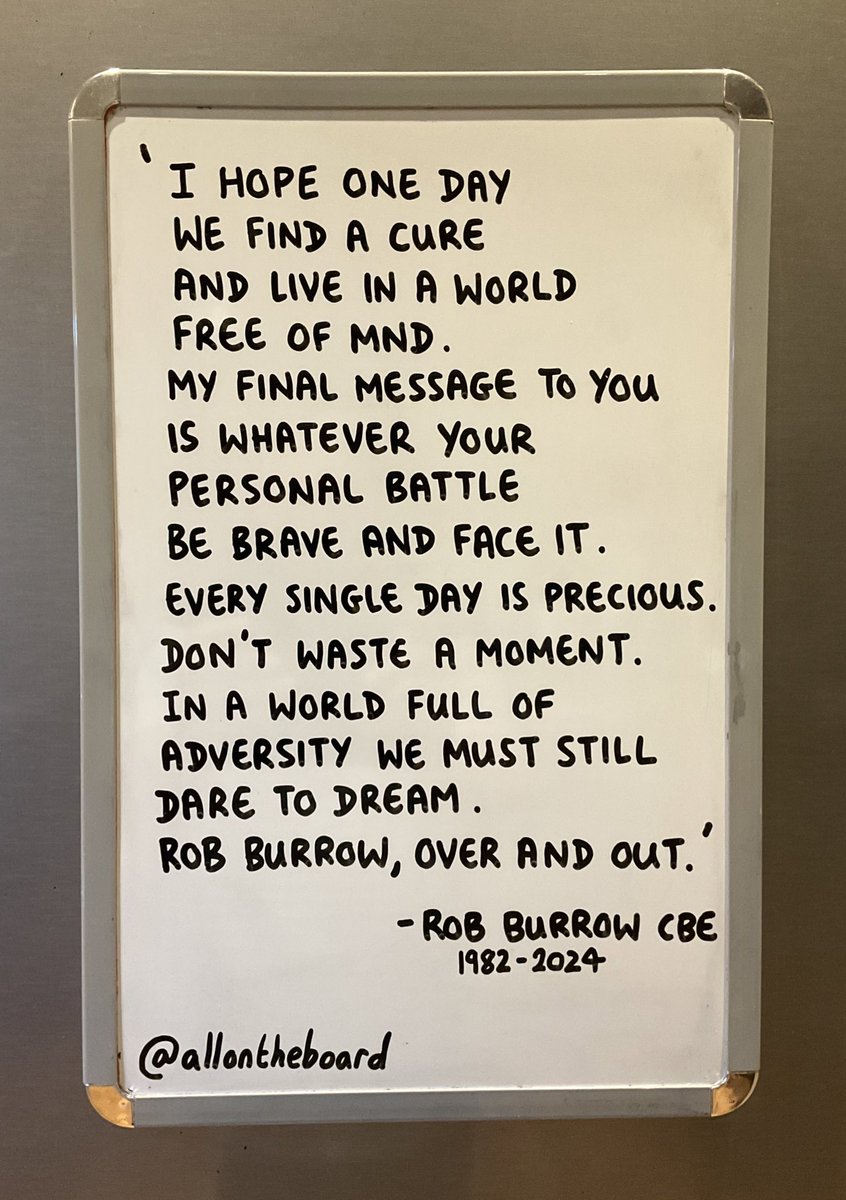 'I HOPE ONE DAY
WE FIND A CURE
AND LIVE IN A WORLD
FREE OF MND.
MY FINAL MESSAGE TO YOU
IS WHATEVER YOUR
PERSONAL BATTLE
BE BRAVE AND FACE IT.
EVERY SINGLE DAY IS PRECIOUS.
DON'T WASTE A MOMENT.
IN A WORLD FULL OF
ADVERSITY WE MUST STILL
DARE TO DREAM.
ROB BURROW, OVER AND OUT.'
- ROB BURROW CBE
1982-2024
@allontheboard